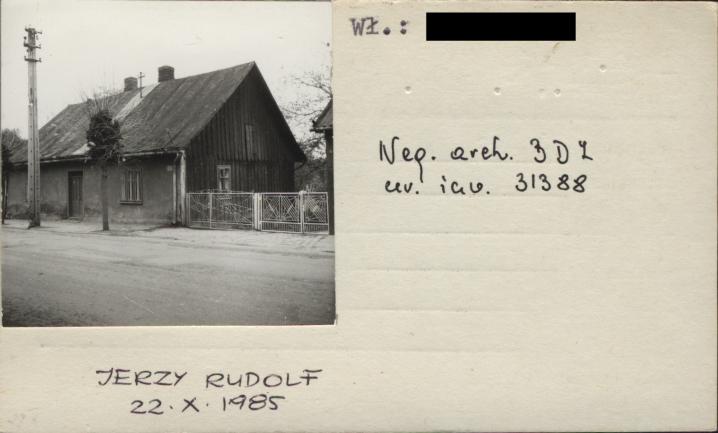 WŁ.:
Neg. arch. BDZ
nr. inw. 31388
JERZY RUDOLF
22.X.1985